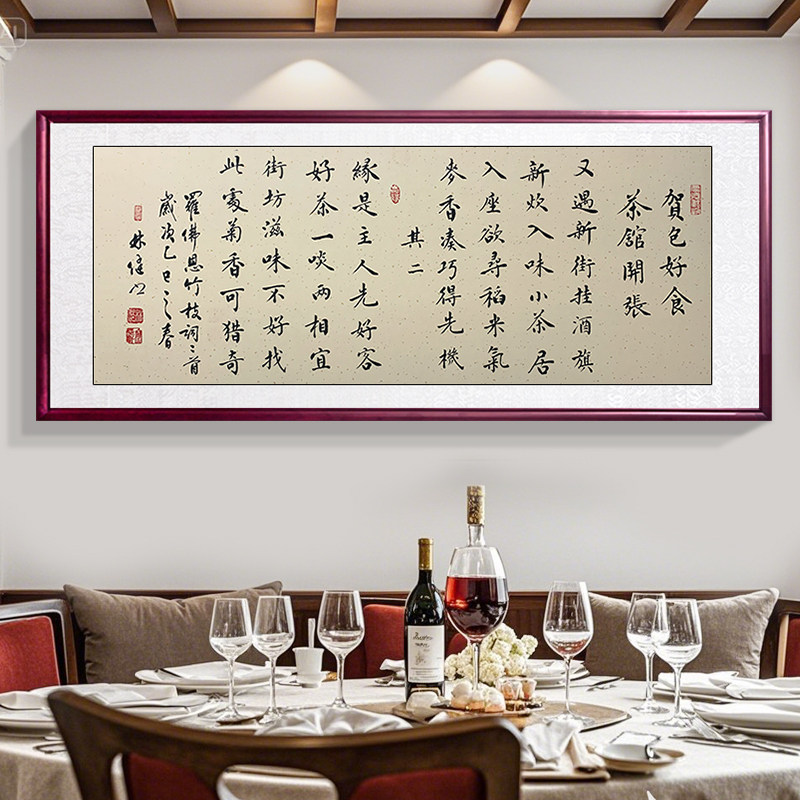 賀包好食
茶舘開張
又遇新街挂酒旗
新炊入味小茶居
入座欲尋稻米氣
麥香湊巧得先機
其二
緣是主人先好客
好茶一啖兩相宜
街坊滋味不好找
此處菊香可猎奇
羅佛恩竹枝詞二首
歲次乙巳之春
林
AI